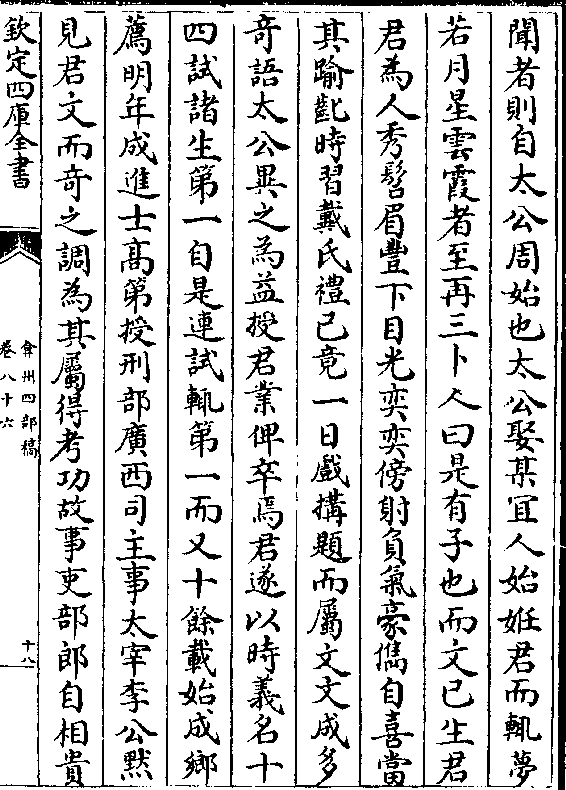 聞者則自太公周始也太公娶某宜人始姙君而輒夢
若月星雲霞者至再三卜人曰是有子也而文已生君
君為人秀髫眉豐下目光奕奕傍射負氣豪儁自喜當
其踰齔時習戴氏禮已竟一日戲搆題而屬文文成多
奇語太公異之為益授君業俾卒焉君遂以時義名十
四試諸生第一自是連試輒第一而又十餘載始成鄉
薦明年成進士髙第授刑部廣西司主事太宰李公黙
見君文而奇之調為其屬得考功故事吏部郎自相貴
欽定四庫全書
弇州四部稿
卷八十六
十八